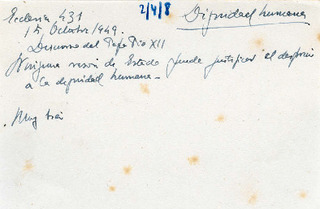 2/4/8
Dignidad humana
Ecclesia 431
15, Octubre/1949.
Discurso del Papa Pio XII
Ninguna razón de Estado puede justificar el desprecio
a la dignidad humana-
. Muy